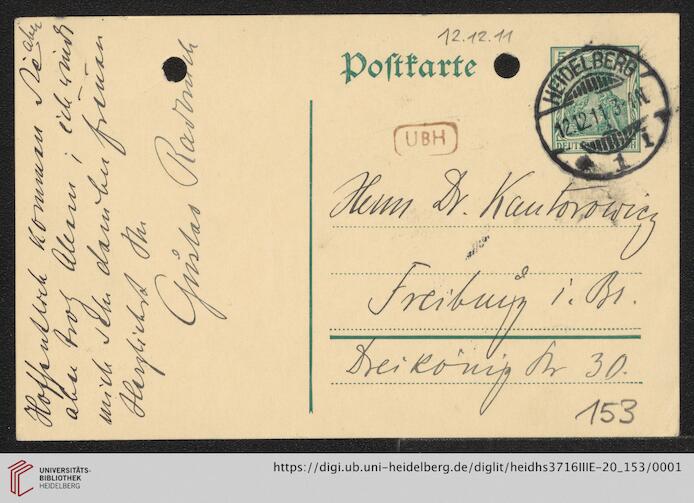 12.12.11
Postkarte
HEIDELBERG
12.12.11
1 1
DEUTSCHES REICH
UBH
Herrn Dr. Kantorowicz
Freiburg i. Br.
Dreikönigstr 30.
153
Hoffentlich kommen Sie aber
aber trotz allem; ich würde
mich sehr darüber freuen
Herzlichst Ihr
Gustav Radbruch
UNIVERSITÄTS-
BIBLIOTHEK
HEIDELBERG
https://digi.ub.uni-heidelberg.de/diglit/heidhs3716IIIE-20_153/0001